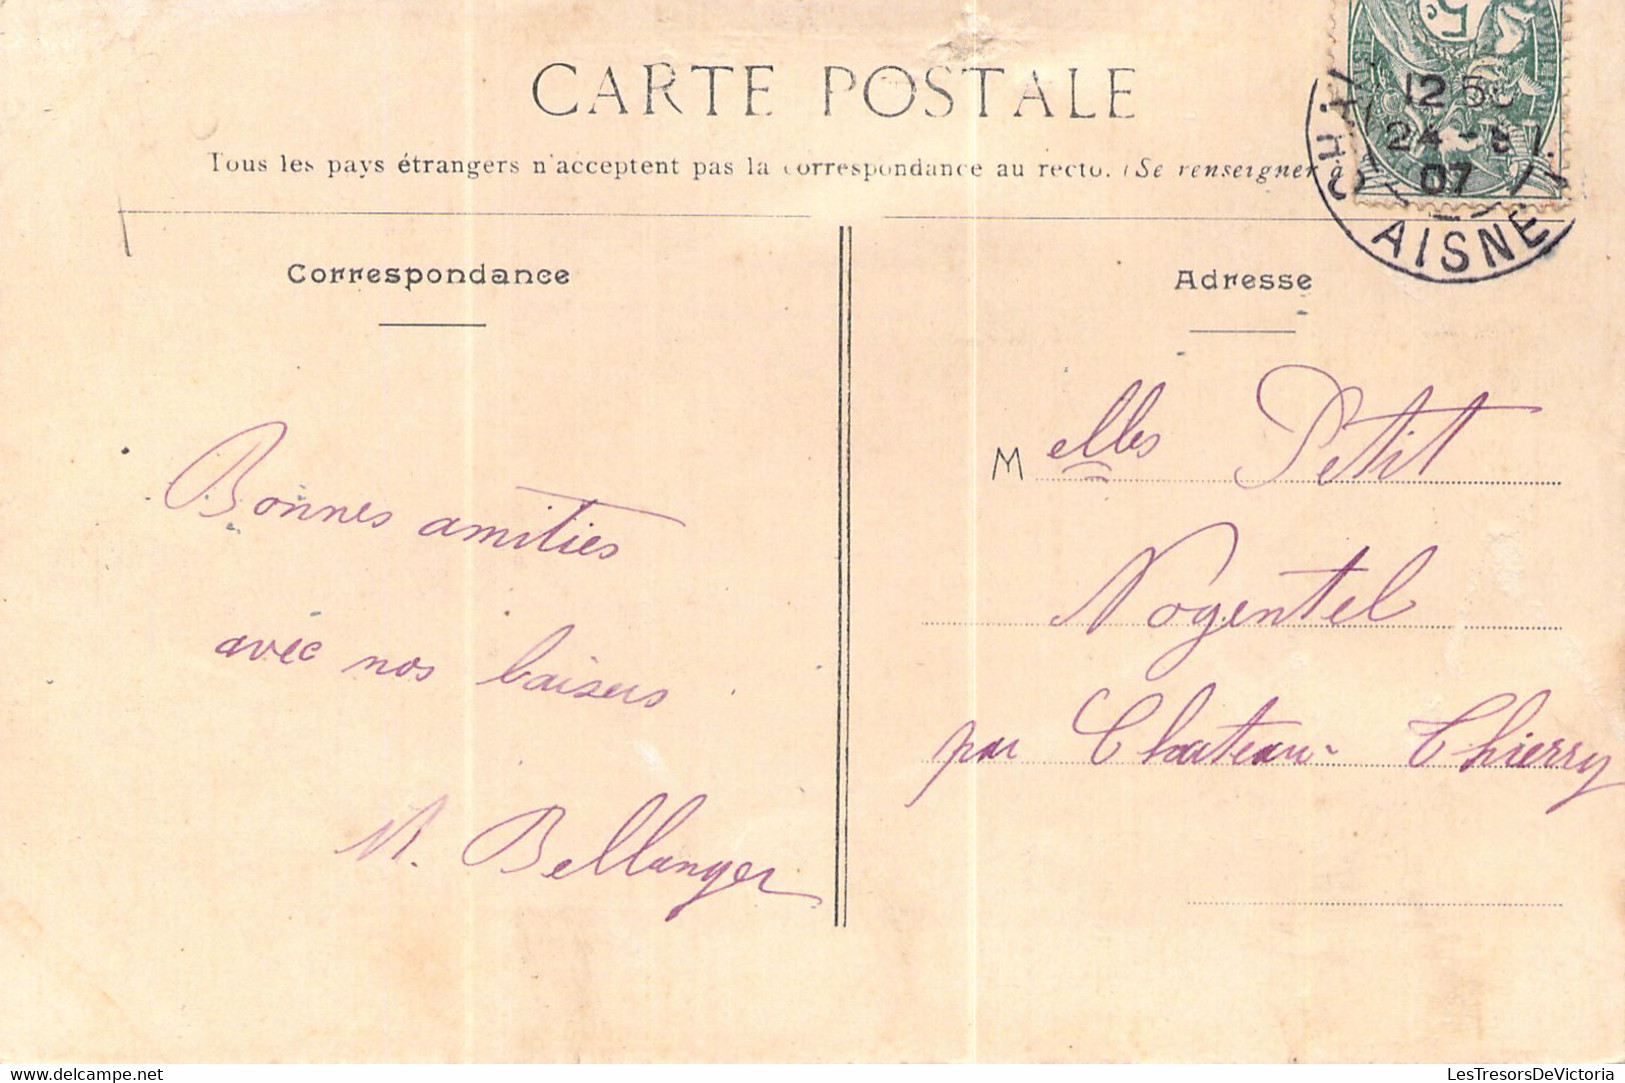 CARTE POSTALE
Tous les pays étrangers n'acceptent pas la correspondance au recto. (Se renseigner à
12
24
07
AISNE
Correspondance
Adresse
Bonnes amitiés
avec nos baisers
M. Bellanger
Melles Petit
Nogentel
par Chateau-Thierry
delcampe.net
LesTresorsDeVictoria